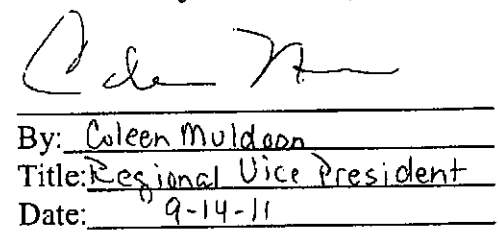 By: Coleen Muldoon
Title: Regional Vice President
Date: 9-14-11